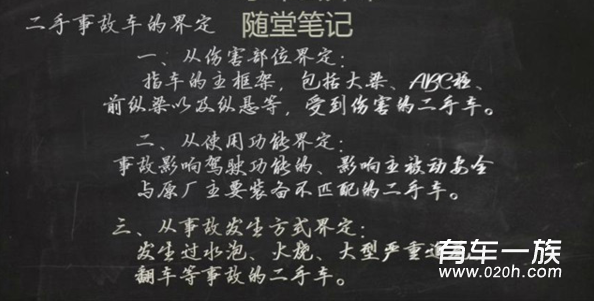 随堂笔记
二手事故车的界定
一、从伤害部位界定：
指车的主框架，包括大梁、ABC柱、
前纵梁以及纵悬等，受到伤害的二手车。
二、从使用功能界定：
事故影响驾驶功能的、影响主被动安全
与原厂主要装备不匹配的二手车。
三、从事故发生方式界定：
发生过水泡、火烧、大型严重
翻车等事故的二手车。
有车一族
www.020h.com